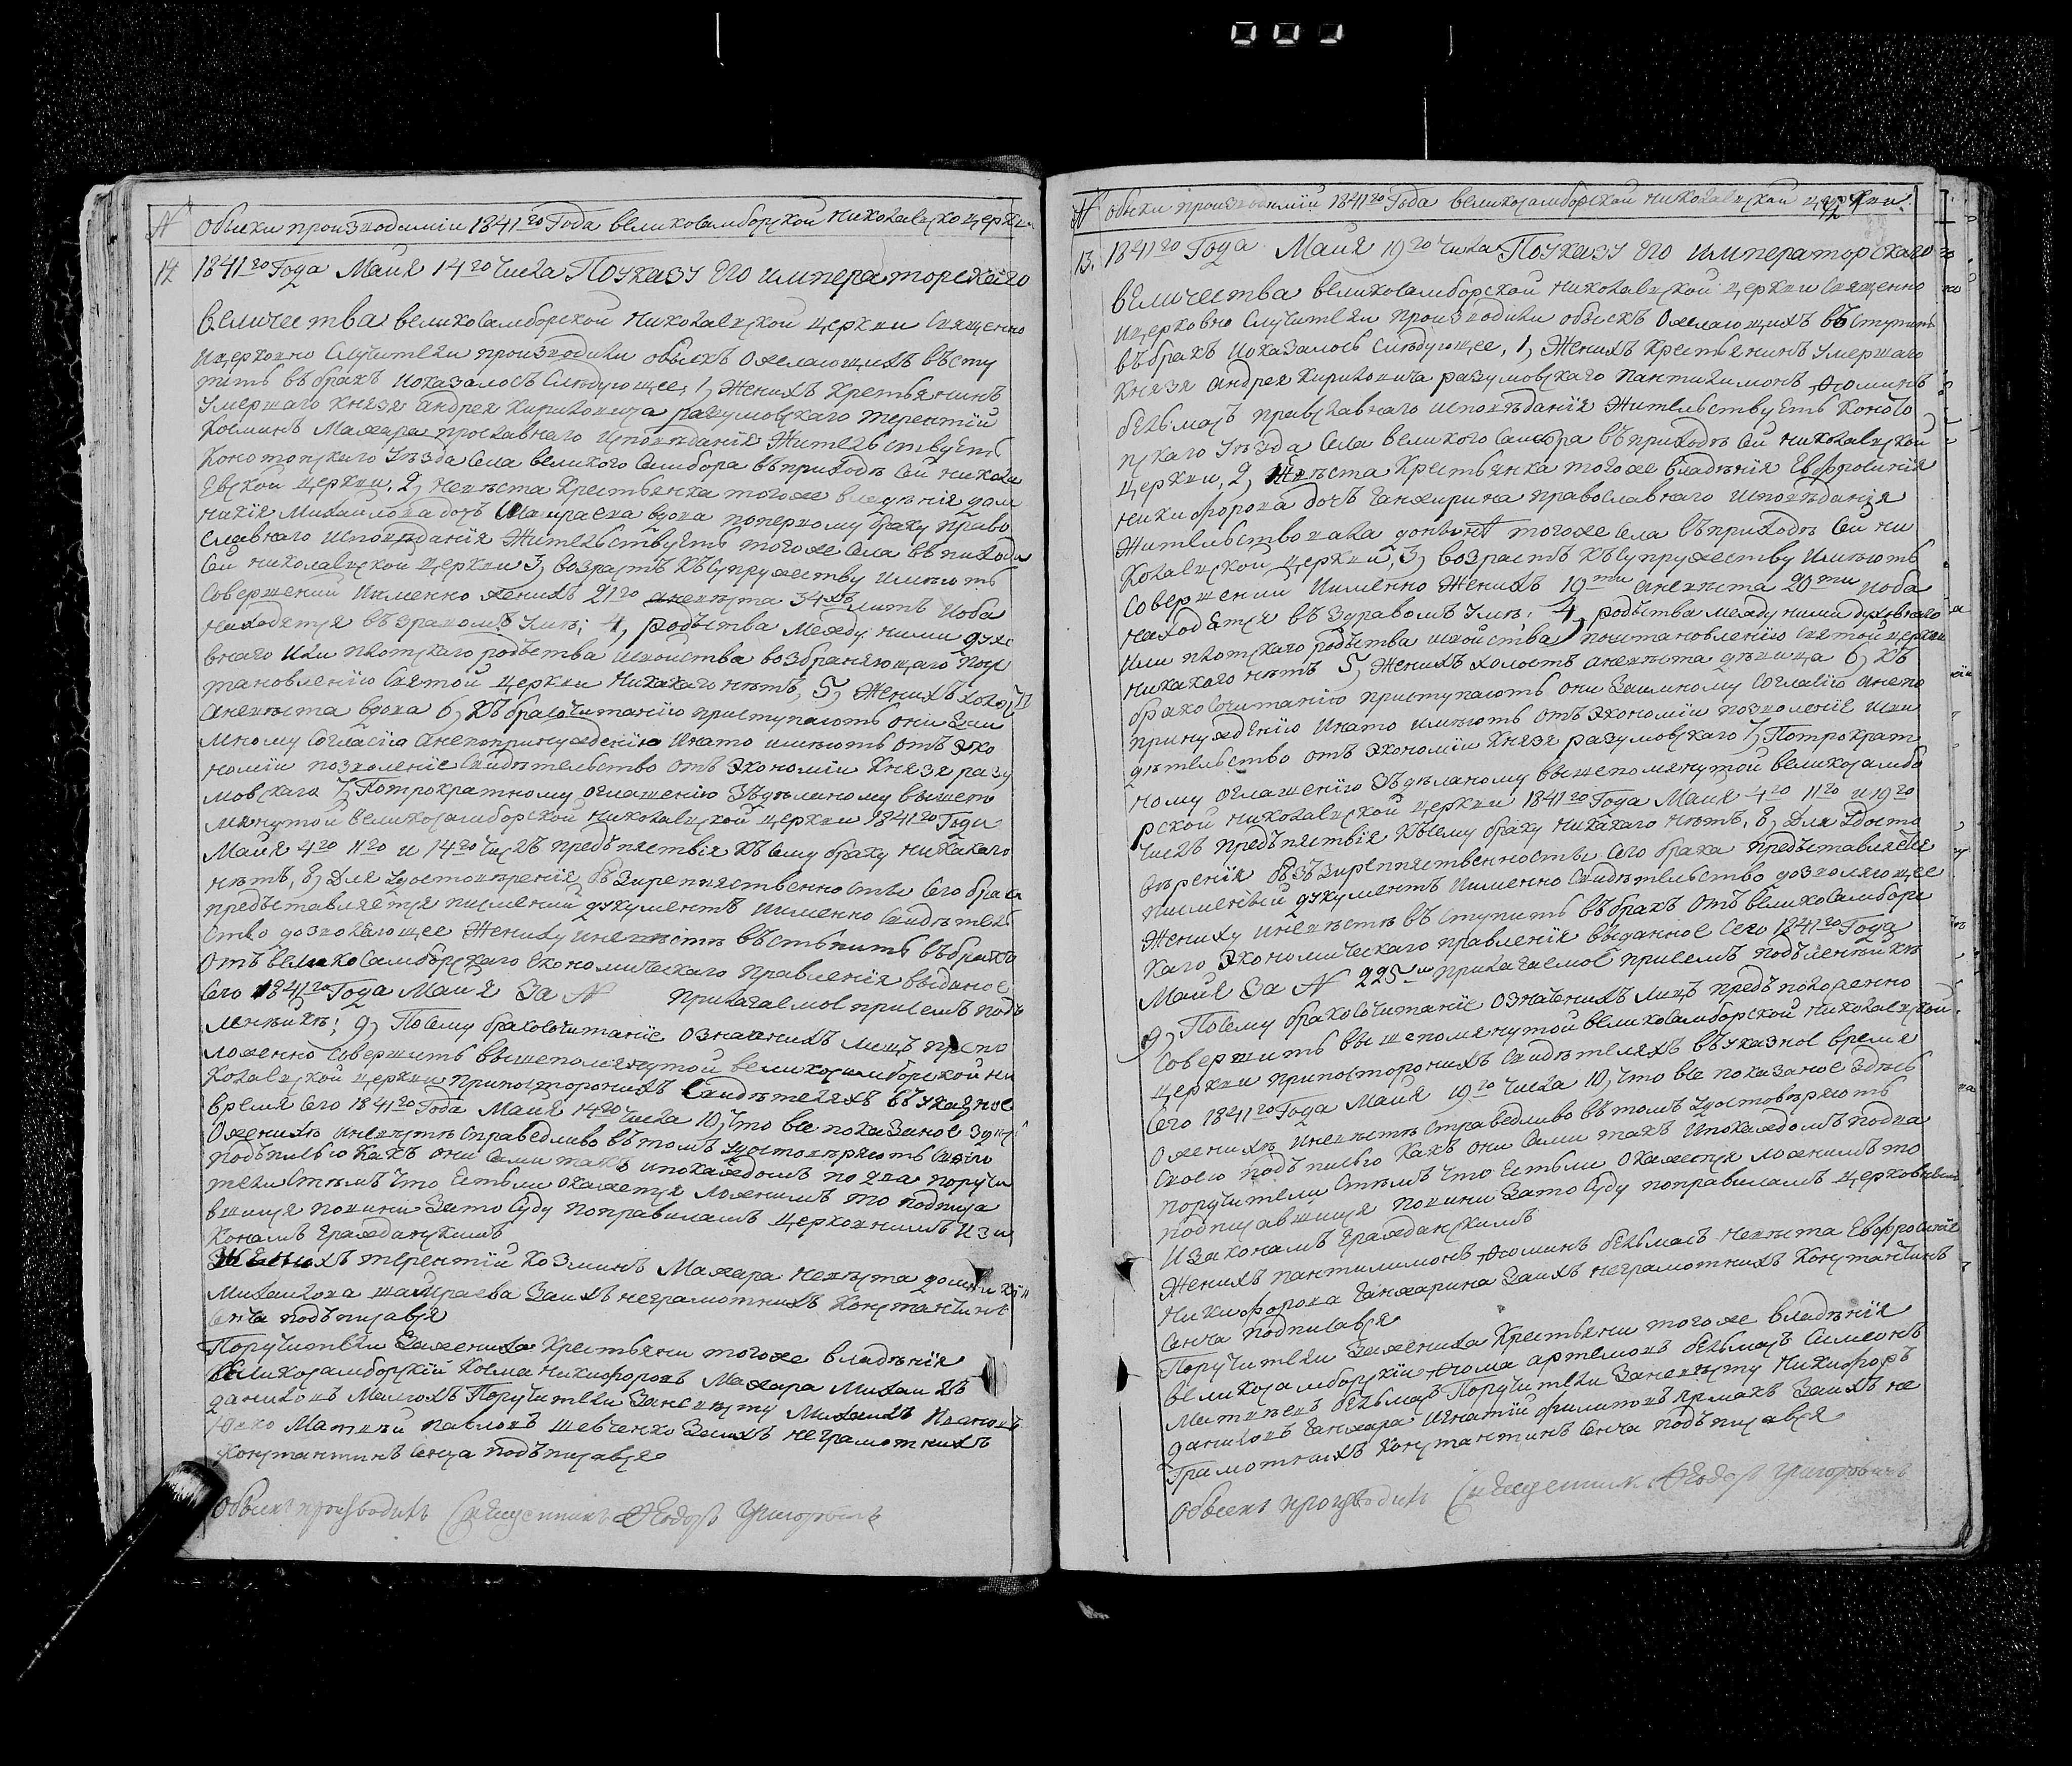 № Обыски производимiи 1841го Года великосамборской николаевско церкви
12 1841го Года Маия 14го числа По указу Его императорскаго
величества великосамборской николаевской церкви Священно
ицерковно Служители производили обыскъ Ожелающихъ въсту
пить въ бракъ иоказалось Слѣдующее, 1, Женихъ Крестьянинъ
умершаго Князя андрея кириловича разумовскаго терентий
Козминъ Махара православнаго исповѣданiя Жительствуетъ
Конотопскаго уѣзда Села великого Самбора въприходѣ Сей никола
Евской церкви, 2, невѣста крестьянка тогоже владѣнiя дом
никiя Михаилова дочъ вдова поперхому браку право
славнаго исповѣданiя Жительствуетъ тогоже Села въ приходѣ
Сей николаевской церкви 3, возрастъ къ Супружеству имѣютъ
Совершений Именно женихъ 21го аневѣста 34хъ лѣтъ иоба
находятся въ здравомъ умѣ; 4, родства между ними духо
внаго или плотскаго родъства исвойства возбраняющаго поус
тановленiю Святой церкви никакаго нѣтъ, 5, Женихъ холост
аневѣста вдова 6, къ бракосочитанiю приступаютъ они взаи
мному Согласiю анепопринуждѣнiю Инато имѣютъ отъ эко
номiи позволенiе Свидѣтельство отъ экономiи Князя разу
мовскаго 7, Потрократному оглашенiю зъдѣланому вышепо
мянутой великосамборской николаевской церкви 1841го Года
Маия 4го 11го и 14го числъ предъпяствiя къ Сему браку никакаго
нѣтъ, 8, Для удостовѣренiя безпрепяственности Сего брака
предъставляется писмений документъ именно Свидѣтель
ство дозволяющее Жениху иневѣстѣ въстъпить въ бракъ
Отъ великосамборскаго Економическаго правленiя выданое
Сего 1841го Года Маия За № прилагаемое присемъ подъ
ленъикъ; 9, Посему бракосочитанiе означенихъ лицъ предпо
ложенно Совершить вышепомянутой великосамборской ни
колаевской церкви припосторонихъ Свидѣтеляхъ въ указное
время Сего 1841го Года Маия 14го числа 10, что все показаное здѣсь
Оженихѣ иневѣстѣ Справедливо въ томъ удостовѣряютъ Своею
подъписью какъ они Сами такъ ипокаждомъ по два поручи
тели Стѣмъ что Естьли окажется ложнимъ то подписа
вшиися повини Зато Суду поправиламъ церковнимъ изза
конамъ гражданскимъ
Женихъ терентiй козминъ Махара невѣста домникiя
Михаилова Заихъ неграмотнихъ Константинъ
Сенча подъписався
Поручители Заженика Крестьяни тогоже владѣнiя
великосамборскiй Козма никифоровъ Махара Михаилъ
даниловъ Поручители Заневѣсту Михаилъ Ивановъ
Матвѣй павловъ шевченко Заихъ неграмотнихъ
Константинъ Сенча подъписався
Обыскъ производилъ Священникъ Феодоръ Григоровичъ
№ Обыски производимiи 1841го Года великосамборской николаевской церкви.
13. 1841го Года Маия 19го числа По указу Его императорскаго
величества великосамборской николаевской церкви Священно
ицерковно Служители производили обыскъ Ожелающихъ въступить
въ бракъ иоказалось Слѣдующее, 1, Женихъ крестьянинъ умершаго
Князя андрея кириловича разумовскаго пантилимонъ Фоминъ
белъмасъ православнаго исповѣданiя Жительствуетъ Коното
пскаго уѣзда Села великого Самбора въприходѣ Сей николаевской
церкви, 2, невѣста Крестьянка тогоже владѣнiя Евфросинiя
никифорова дочъ Ганжирина православнаго исповѣданiя
Жительствовала донынѣ тогоже Села въприходѣ Сей ни
колаевской церкви, 3, возрастъ къ Супружеству имѣютъ
Совершений Именно Женихъ 19ти аневѣста 20ти иоба
находятся въ здравомъ умѣ: 4, родъства между ними духовнаго
или плотскаго родъства исвойства поустановленiю Святой церкви
никакаго нѣтъ 5, Женихъ холостъ аневѣста дѣвица 6, къ
бракосочитанiю приступаютъ они взаимному Согласiю анепо
принуждѣнiю инато имѣютъ отъ экономiи позволенiе Сви
дѣтельство отъ экономiи Князя разумовскаго 7, Потрократ
ному оглашенiю зъдѣланому вышепомянутой великосамбо
рской николаевской церкви 1841го Года Маия 4го 11го и 19го
числъ предъпяствiя къ Сему браку никакаго нѣтъ, 8, Для удосто
вѣренiя безъпрепяственности Сего брака предъставляется
писмений документъ именно Свидѣтельство дозволяющее
Жениху иневѣстѣ въступить въ бракъ Отъ великосамборс
каго экономическаго правленiя выданное Сего 1841го Года
Маия За № 225м прилагаемое присемъ подъленъикъ
9, Посему бракосочитанiе означенихъ лицъ предъположенно
Совершить вышепомянутой великосамборской николаевской
церкви припосторонихъ Свидѣтеляхъ въ указное время
Сего 1841го Года Маия 19го числа 10, что все показаное здѣсь
Оженихѣ иневѣстѣ Справедливо въ томъ удостовѣряютъ
Своею подъписью какъ они Сами такъ ипокаждомъ подва
поручители Стѣмъ что Естьли окажется ложнимъ то
подписавшиися повини Зато Суду поправиламъ церковнимъ
изаконамъ гражданскимъ
Женихъ пантилимонъ Фоминъ белъмасъ невѣста Евфросинiя
никифорова Ганжарина Заихъ неграмотнихъ Константинъ
Сенча подписався
Поручители Заженика Крестьяни тогоже владѣнiя
великосамборскiи Фома артемовъ белъмасъ Симеонъ
Матвѣевъ белъмасъ Поручители Заневѣсту никифоръ
даниловъ Ганжара игнатiй филиповъ Ермакъ Заихъ не
грамотнихъ Константинъ Сенча подъписався
Обыскъ производилъ Священникъ Феодоръ Григоровичъ